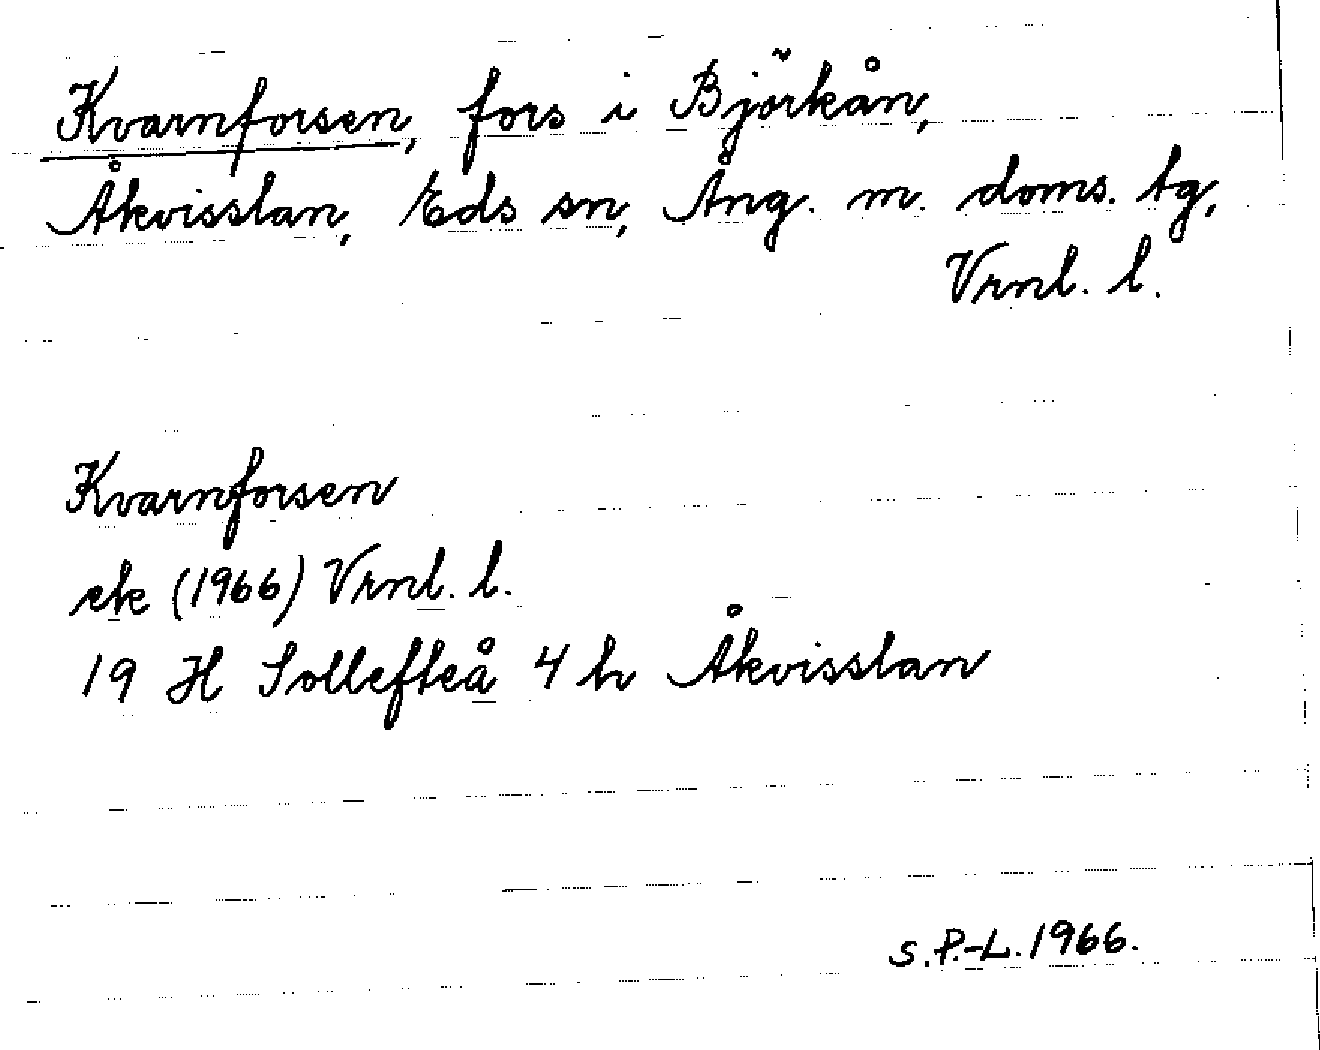 Kvarnforsen, fors i Björkån,
Åkvisslan, Eds sn, Ång. m. doms. tg,
Vrnl. l.
Kvarnforsen
ek (1966) Vrnl. l.
19 H Sollefteå 4 h Åkvisslan
S.P.-L. 1966.